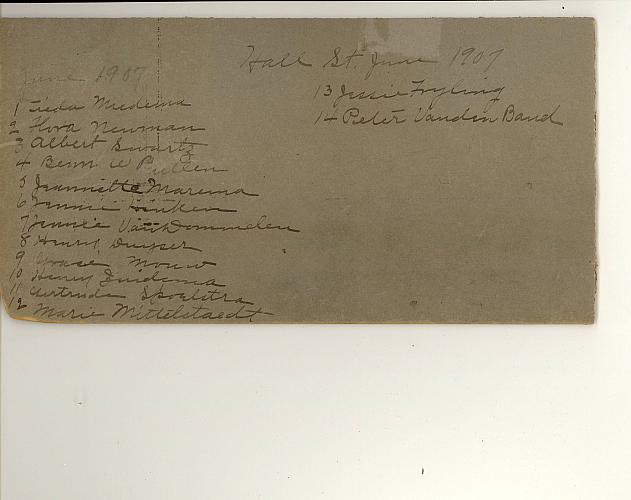 Hall St. June 1907
June 1907
1 Freda Miedema
2 Flora Newman
3 Albert Swartz
4 Benn W Pullen
5 Jeannette Marema
6 Jennie Hinken
7 Jennie Van Dommelen
8 Henry Duyser
9 Grace Mouw
10 Henry Zuidema
11 Gertrude Spoelstra
12 Marie Mittelstaedt
13 Jessie Fryling
14 Peter Vanden Band